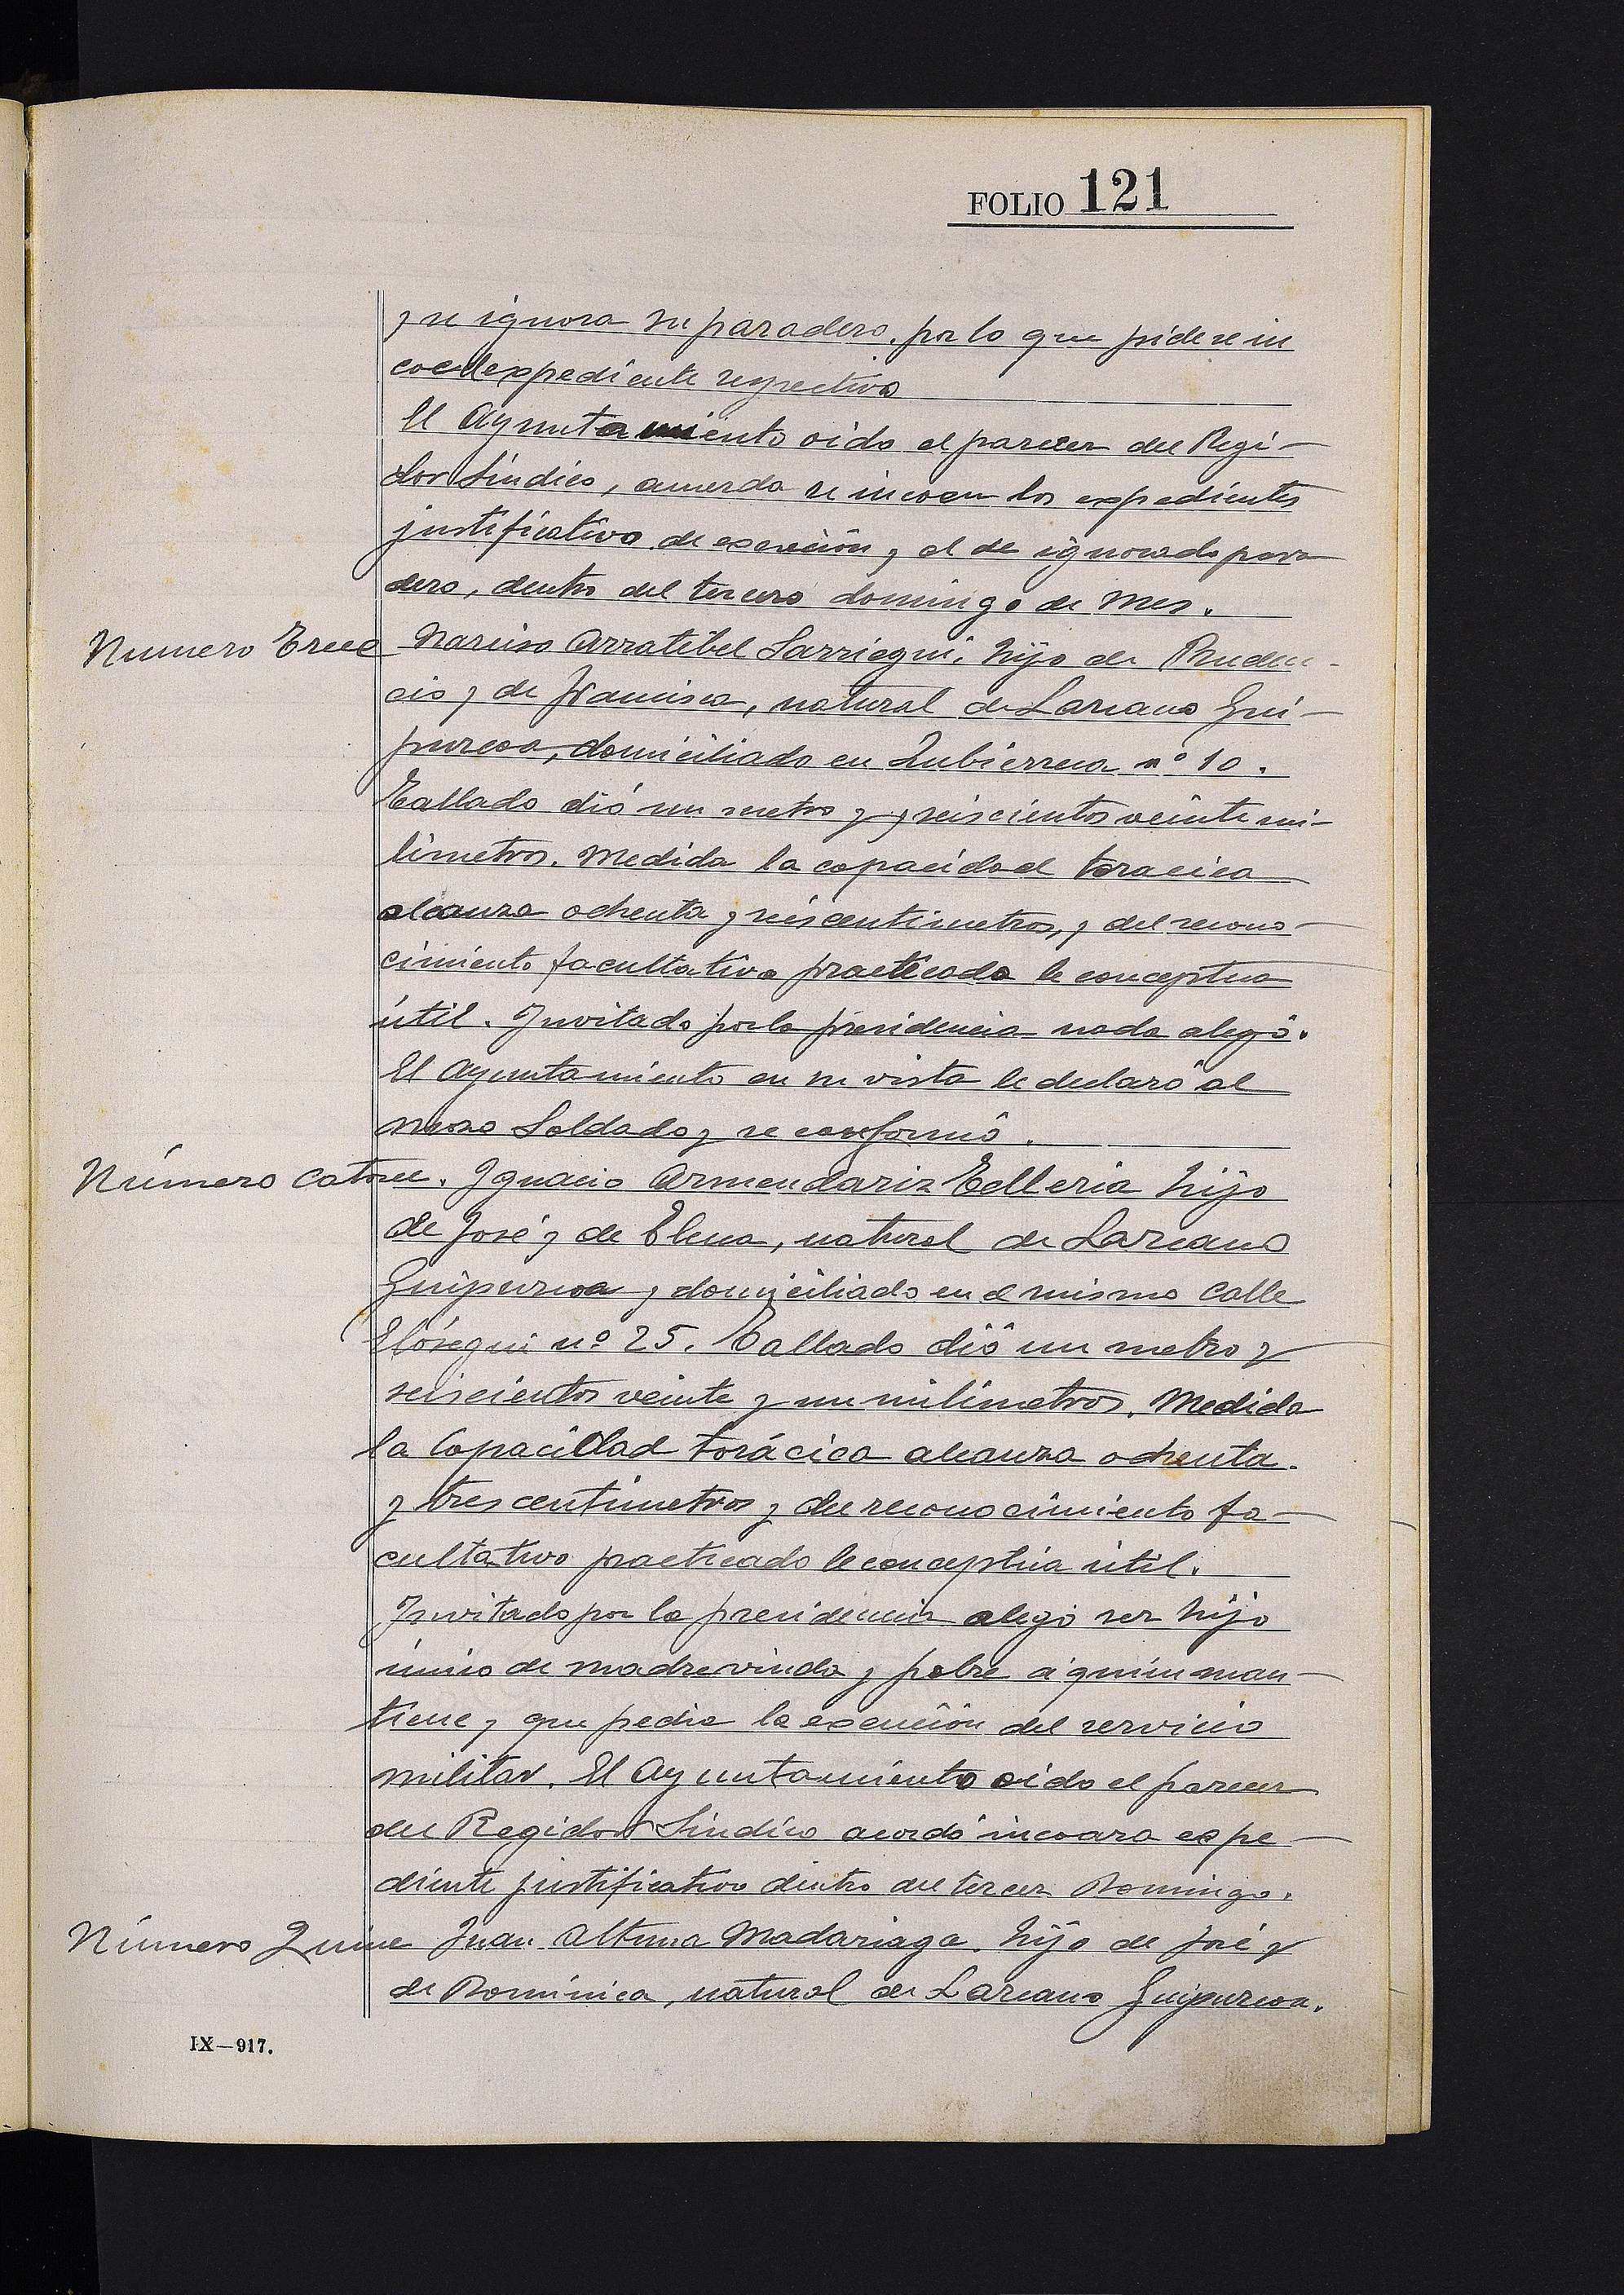 FOLIO 121
y se ignora su paradero, por lo que pide se in
coe el expediente respectivo
El Ayuntamiento oido el parecer del Regi-
dor Sindico, acuerda se incoen los expedientes
justificativo de exención y al de ignorado para
dero, dentro del tercero domingo de mes.
Numero Trece Narciso Arratibel Sarriegui, hijo de Pruden-
cio y de Francisca, natural de Lazcano Gui-
puzcoa, domiciliado en Zubierreca nº 10.
Tallado dió un metro y y seiscientos veinte mi-
limetros. Medida la capacidad toracica
alcanza ochenta y seis centimetros, y del recono-
cimiento facultativo practicado le conceptua
útil. Invitado por la presidencia nada alegó.
El Ayuntamiento en su vista le declaró al
mozo Soldado y se conformó.
Número catorce. Ignacio Armendariz Telleria hijo
de José y de Elena, natural de Lazcano
Guipuzcoa y domiciliado en el mismo calle
Elósegui nº 25. Tallado dió un metro y
seiscientos veinte y un milimetros. Medida
la Capacidad torácica alcanza ochenta.
y tres centimetros y del reconocimiento fa-
cultativo practicado le conceptúa útil.
Invitado por la presidencia alegó ser hijo
único de madre viuda y pobre a quien man-
tiene y que pedia la exención del servicio
militar. El Ayuntamiento oido el parecer
del Regidor Sindico acordó incoara expe-
diente justificativo dentro del tercer Domingo.
Número Quince Juan Altuna Madariaga. hijo de José y
de Dominica, natural de Lazcano Guipuzcoa.
IX-917.